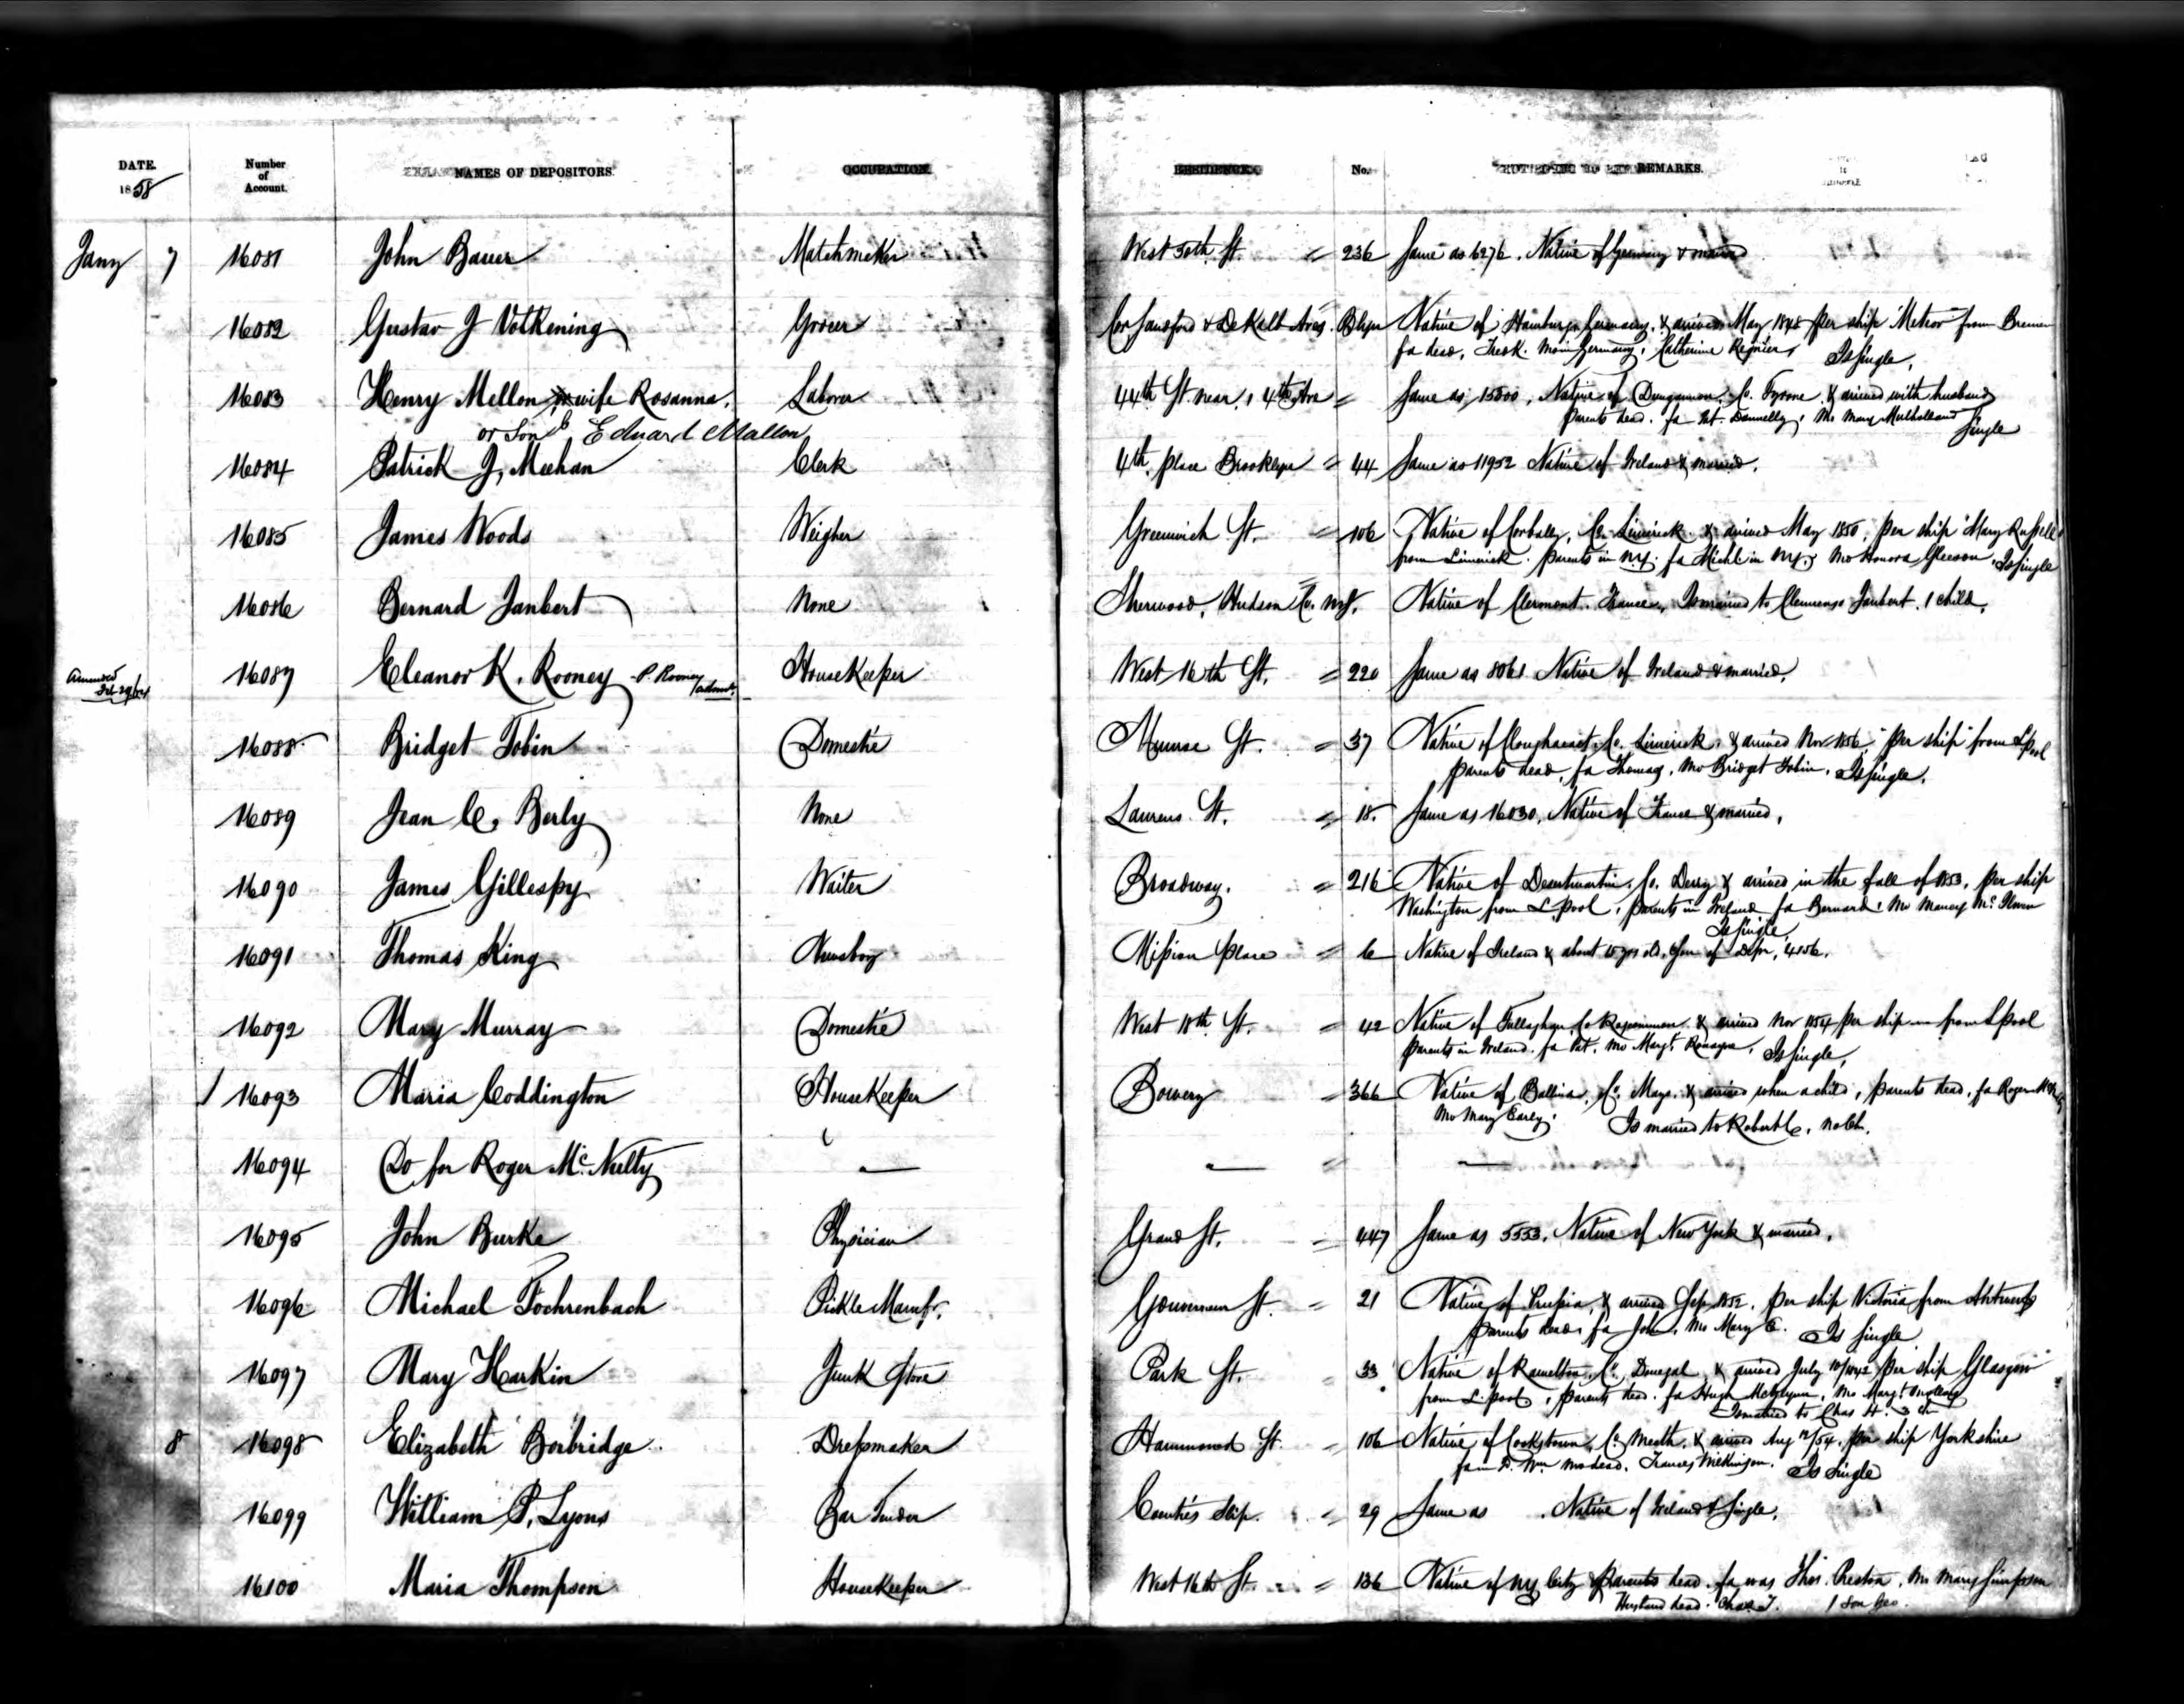 DATE. Number of Account. NAMES OF DEPOSITORS. OCCUPATION. RESIDENCE. No. REMARKS.
1858
Jany 7 16081 John Bauer Matchmaker West 30th St. " 236 Same as 6276. Native of Germany & married
16082 Gustav J Volkening Grocer Cor Sandford & DeKalb Aves. Bklyn Native of Hamburg, Germany, & arrived May 1848 per ship "Meteor" from Bremen
fa dead, Fredk. mo in Germany, Catherine Is single.
16083 Henry Mellon or wife Rosanna. Laborer 44th St near 4th Ave " Same as 15800, Native of Dungannon, Co. Tyrone & arrived with husband
parents dead. fa Pat. Donnelly, Mo Mary Mulholland
or Son Edward Mallon Single
16084 Patrick J, Meehan Clerk 4th place Brooklyn " 44 Same as 11952 Native of Ireland & married.
16085 James Woods Weigher Greenwich St. " 106 Native of Corbally, Co. Limerick & arrived May 1850, per ship "Mary Russell"
from Limerick. parents in NY. fa Michl in NY, mo Honora Gleeson. Is single
16086 Bernard Janbert None Sherwood, Hudson Co. NJ. Native of Clermont, France, Is married to Janbert. 1 child.
Amended
16087 Eleanor K. Rooney - P. Rooney HouseKeeper West 16th St. " 220 Same as 8061 Native of Ireland & married.
16088 Bridget Tobin Domestic Munroe St. " 37 Native of Co. Limerick, & arrived Nov 1856, "per ship" from L'pool
parents dead, fa Thomas, Mo Bridget Tobin. Is single.
16089 Jean C. Berly None Laurens St. " 18. Same as 16030, Native of France & married.
16090 James Gillespy Waiter Broadway. " 216 Native of Desertmartin, Co. Derry & arrived in the fall of 1853. per ship
Washington from L-pool, parents in Ireland fa Bernard, Mo Nancy
Is single,
16091 Thomas King Newsboy Mission place " 6 Native of Ireland & about 15 yrs old, Son of Depr. 4156.
16092 Mary Murray Domestic West 18th St. " 42 Native of Co Roscommon & arrived Nov 1854 per ship — from L pool
parents in Ireland. fa Pat. mo Margt Is single,
16093 Maria Coddington HouseKeeper Bowery " 366 Native of Ballina, Co. Mayo. & arrived when a child, parents dead, fa Roger
Mo Mary Early. Is married to Robert C, no ch.
16094 Do for Roger McNulty — — " —
16095 John Burke Physician Grand St. " 447 Same as 5553. Native of New York & married.
16096 Michael Fochrenbach Pickle Manufr. Gouverneur St. " 21 Native of Prussia, & arrived Sep 1852. per ship Victoria from Antwerp
parents dead, fa John, Mo Mary E. Is Single
16097 Mary Harkin Junk Store Park St. " 33 Native of Ramelton, Co, Donegal & arrived July 10/1842 per ship Glasgow
from L-pool, parents dead. fa Hugh McGlynn, Mo Margt
Is married to Chas H. 3 ch
8 16098 Elizabeth Borbridge Dressmaker Hammond St. " 106 Native of Cookstown, Co. Meath, & arrived Aug 12/54. per ship Yorkshire
fa in I. Wm mo dead. Frances Wilkinson. Is Single
16099 William P. Lyons Bar Tender Coenties Slip. " 29 Same as . Native of Ireland & Single.
16100 Maria Thompson HouseKeeper West 16th St. " 136 Native of NY City & Parents dead. fa was Thos. Preston. Mo Mary Simpson
Husband dead. Chas. T. 1 son Geo.